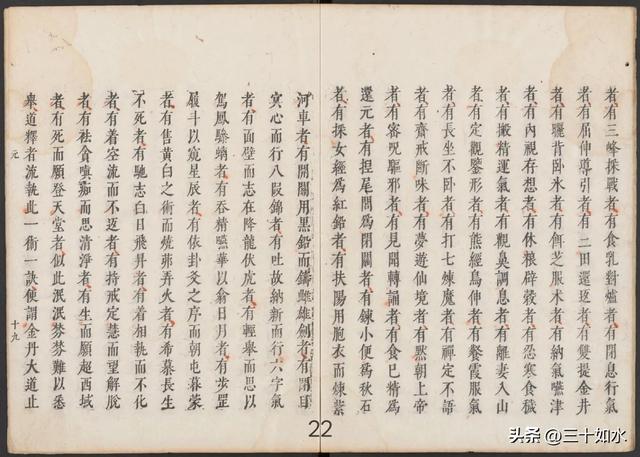 者有三峰採戰者有食乳對爐者有閉息行氣
者有屈伸導引者有三田還返者有雙提金井
者有曬背臥冰者有餌芝服朮者有納氣嚥津
者有內視存想者有休粮辟穀者有忍寒食穢
者有搬精運氣者有觀鼻調息者有離妻入山
者有定觀鑒形者有熊經鳥伸者有餐霞服氣
者有長坐不臥者有打七煉魔者有禪定不語
者有齋戒斷味者有夢遊仙境者有默朝上帝
者有密呪驅邪者有見聞轉誦者有食己精為
還元者有捏尾閭為閉關者有鍊小便為秋石
者有採女經為紅鉛者有扶陽用胞衣而煉紫
河車者有開關用黑鉛而鑄雌雄劍者有閉目
冥心而行八段錦者有吐故納新而行六字氣
者有面壁而志在降龍伏虎者有輕舉而思以
駕鳳驂螭者有吞精嚥華以翕日月者有步罡
履斗以窺星辰者有依卦爻之序而朝屯暮蒙
者有售黃白之術而燒茆弄火者有希慕長生
不死者有馳志白日飛昇者有着相執而不化
者有着空流而不返者有持戒定慧而望解脫
者有祛貪嗔癡而思清淨者有生而願超西域
者有死而願登天堂者似此泯泯棼棼難以悉
舉道釋者流執此一術一訣便謂金丹大道止
元
十九
22
头条@三十如水